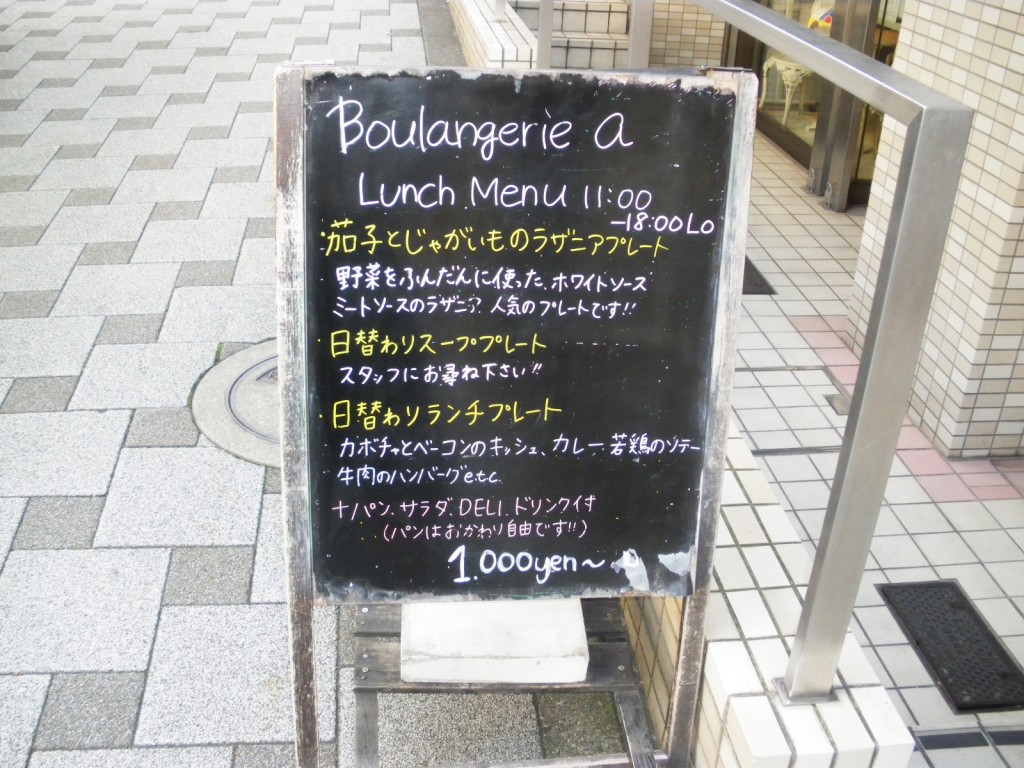 Boulangerie a
Lunch Menu 11:00
-18:00 LO
・茄子とじゃがいものラザニアプレート
野菜をふんだんに使った、ホワイトソース
ミートソースのラザニア。人気のプレートです!!
・日替わりスーププレート
スタッフにお尋ね下さい!!
・日替わりランチプレート
カボチャとベーコンのキッシュ、カレー 若鶏のソテー
牛肉のハンバーグ e.t.c.
+パン、サラダ、DELI、ドリンク付
(パンはおかわり自由です!!)
1.000yen〜